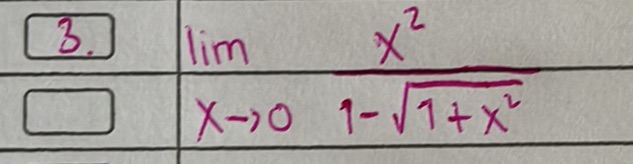 3. lim x²
x→0 1-√1+x²